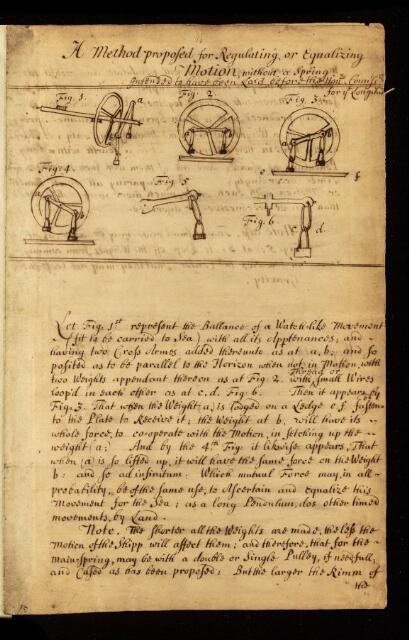 A Method proposed for Regulating, or Equalizing
Motion, without a Spring
Intended to have been Laid before the Honble Comiss
for ye Longitud
Fig. 1. a
Fig. 2.
Fig. 3.
Fig. 4
e f
Fig. 5
Fig. 6
d.
Let Fig. 1st represent the Ballance of a Watch-like Movement
(fit to be carried to Sea) with all its Apptenances; and
having two Cross Armes added thereunto as at a, b; and so
posited as to be parallel to the Horizon when not in Motion, with
two Weights appendant thereon as at Fig. 2. with small Wires
Thread or
loop'd in each other as at c.d. Fig. 6. Then it appears by
Fig. 3. That when the Weight (a) is lodged on a Ledge e f fasten
to the Plate to Receive it; the Weight at b, will have its
whole force, to co-operate with the Motion, in fetching up the
weight (a). And by the 4th Fig: it likewise appears, That
when (a) is so lifted up, it will have the same force on the Weight
b: and so ad infinitum: Which mutual Force may, in all
probability, be of the same use, to Ascertain and Equalize this
Movement for the Sea; as a long Pendulum, dos other timed
movements, by Land.
Note. The shorter all the Weights are made, the less the
Motion of the Shipp will affect them; and therefore, that for the
main-spring, may be with a double or Single Pulley, if needfull,
and Cased as has been proposed: But the larger the Rimm of
the